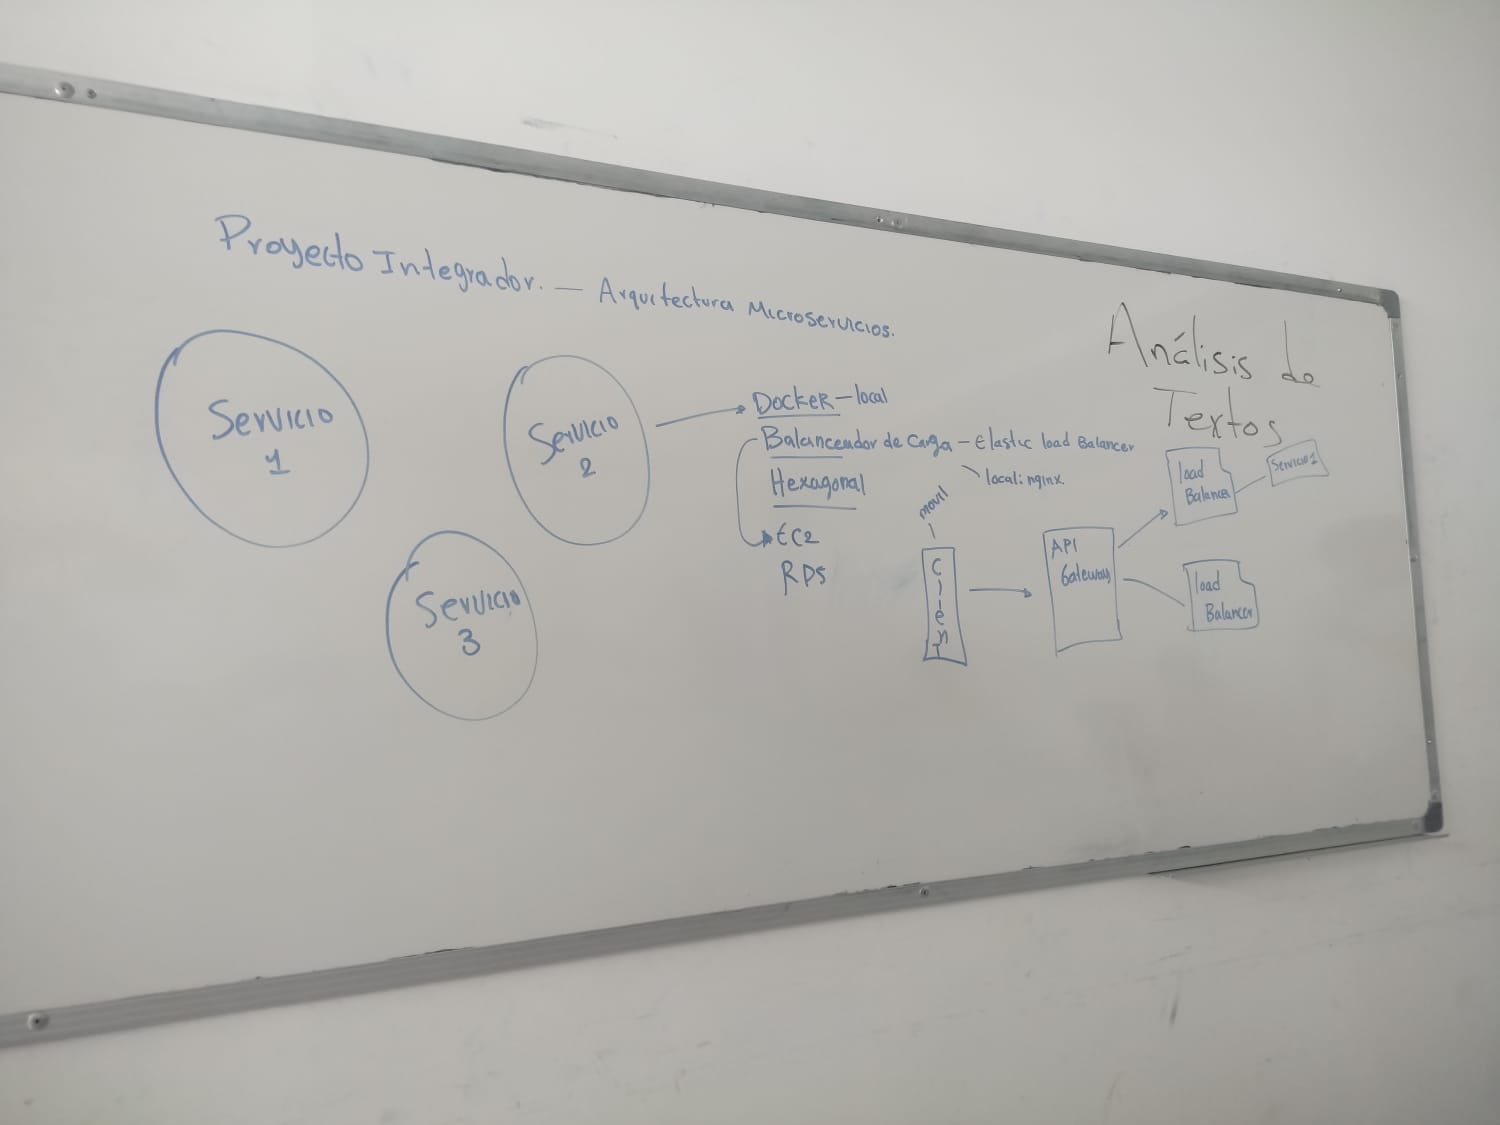 Proyecto Integrador. — Arquitectura Microservicios.
Análisis de
Textos
Servicio
1
Servicio
2
Servicio
3
Docker - local
Balanceador de carga - Elastic load Balancer
local: nginx.
Hexagonal
EC2
RDS
movil
Client
API
Gateway
load
Balancer
Servicio 1
load
Balancer